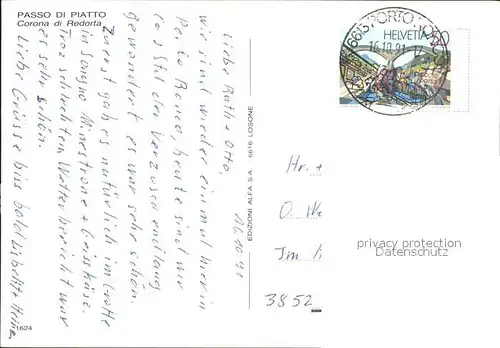 PASSO DI PIATTO
Corona di Redorta
16.10.91
Liebe Ruth + Otto,
wir sind wieder einmal hier in
Porto Ronco, heute sind wir
ca 5 Std. der Verzasca entlang
gewandert es war sehr schön.
Zuerst gab es natürlich im Grotto
in Sonogno Minestrone + Geisskäse.
Troz schlechtem Wetterbericht war
es sehr schön.
Liebe Grüsse biss bald Lisbeth + Heinz
1624
EDIZIONI ALFA S A 6616 LOSONE
6613 PORTO
16.10.91
HELVETIA
Hr. +
O.
Im
3852
privacy protection
Datenschutz